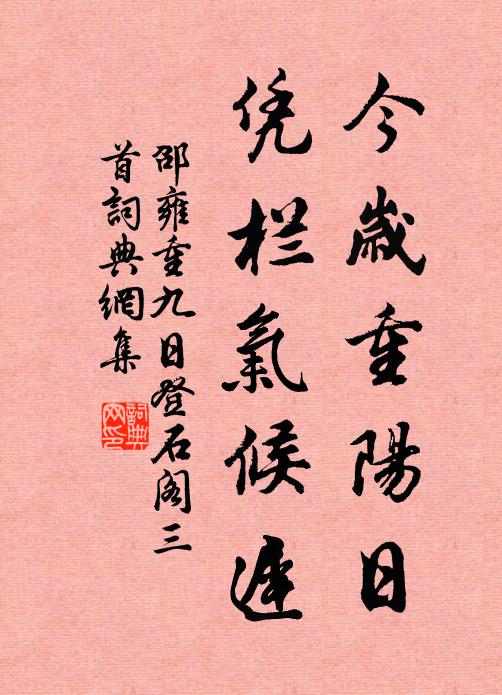 今歲重陽日
凭栏氣候遲
邵雍重九日登石阁三
首詞典網集
詞典
网印